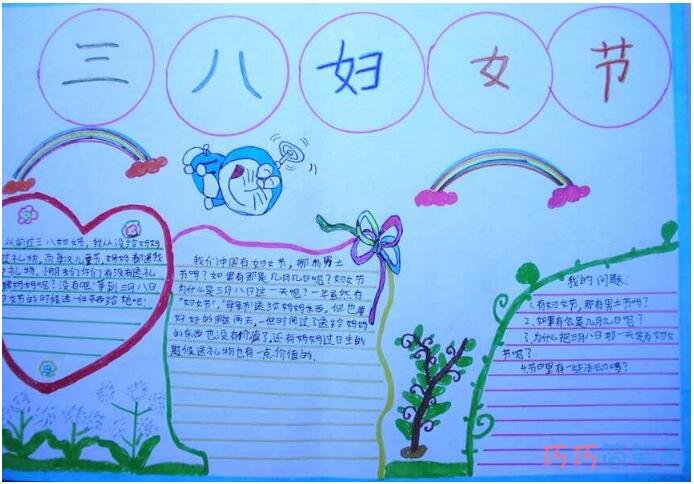 三八妇女节
以前过三八妇女节,我从没给妈妈
过礼物,而每次儿童节,妈妈都送我
礼物,小朋友们你们有没有送礼
妈妈呢?没有吧!等到三月八日
妇女节的时候送一份东西给她吧!
我们中国有妇女节,那有男士
节吗?如果有那是几月几日呢?妇女节
为什么是三月八日这一天呢?一年虽然有
“妇女节”,“母亲节”送给妈妈东西,但也要
好好的 两天,一但时间过了送给妈妈
的东西也没有价值了,还有妈妈过日生的
时候送礼物也有一点价值的.
我的问题:
1.有妇女节,那有男士节吗?
2.如果有它是几月几日呢?
3.为什么把三月八日那一天定为妇女
节呢?
4.节日里有一些活动吗?
巧巧简笔画